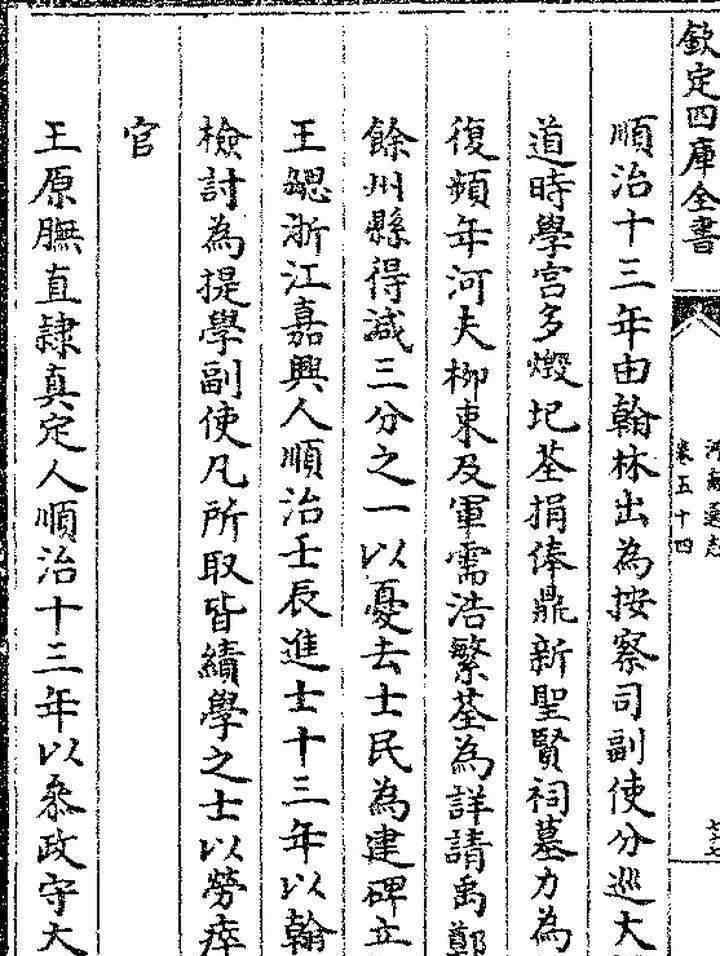 欽定四庫全書
河南通志
卷五十四
順治十三年由翰林出為按察司副使分巡大
道時學宮多燬圮荃捐俸鼎新聖賢祠墓力為
復頻年河夫柳束及軍需浩繁荃為詳請禹鄭
餘州縣得減三分之一以憂去士民為建碑立
王勰浙江嘉興人順治壬辰進士十三年以翰
檢討為提學副使凡所取皆績學之士以勞瘁
官
王原膴直隸真定人順治十三年以叅政守大